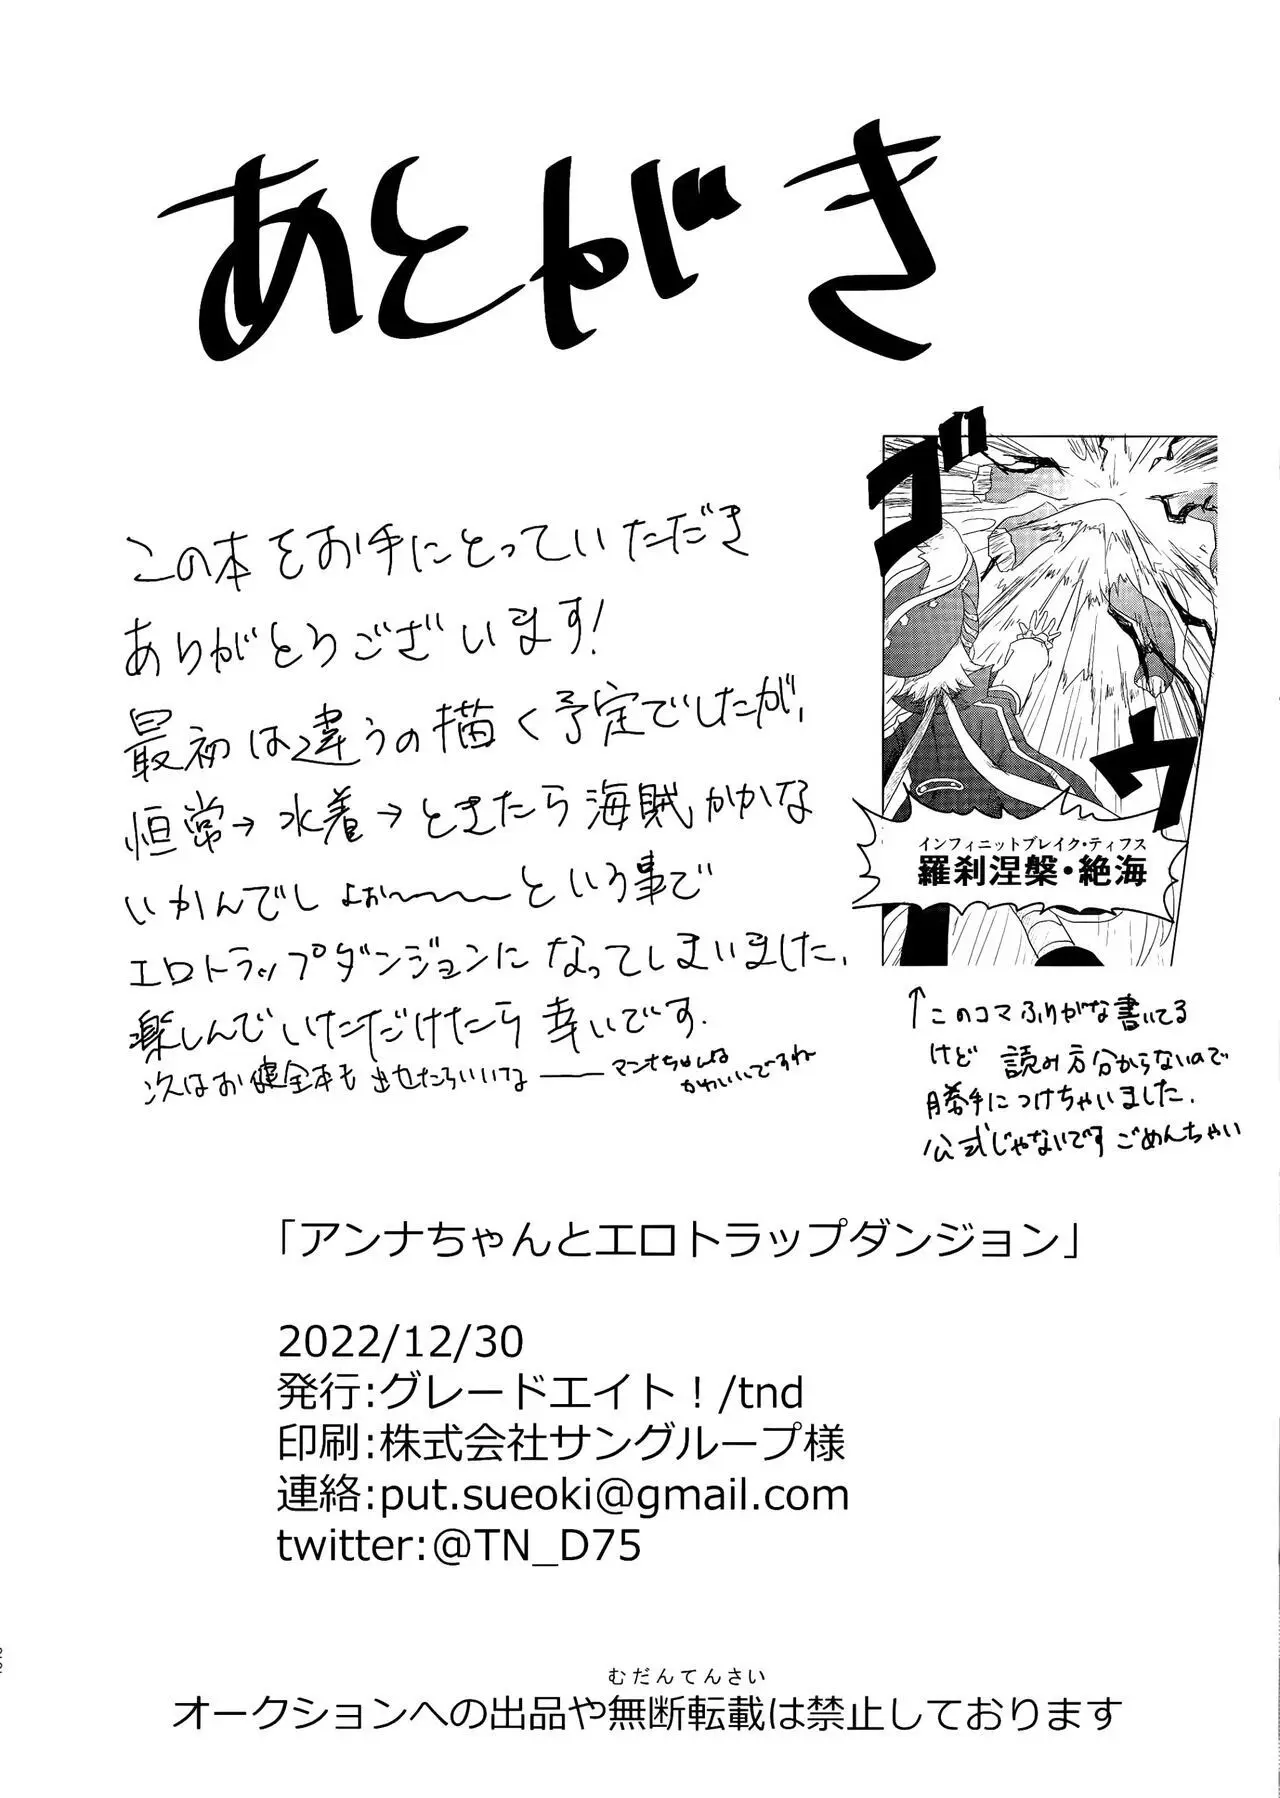 あとがき
この本をお手にとっていただき
ありがとうございます!
最初は違うの描く予定でしたが、
恒常→水着→ときたら海賊かかな
いかんでしょぉ〜〜〜という事で
エロトラップダンジョンになってしまいました.
楽しんでいただけたら幸いです.
次はお健全本も出せたらいいな――
かわいいですね
ゴ
ウ
インフィニットブレイク・ティフス
羅刹涅槃・絶海
↑このコマふりがな書いてる
けど 読み方分からないので
勝手につけちゃいました.
公式じゃないです ごめんちゃい
「アンナちゃんとエロトラップダンジョン」
2022/12/30
発行:グレードエイト！/tnd
印刷:株式会社サングループ様
連絡:put.sueoki@gmail.com
twitter:@TN_D75
むだんてんさい
オークションへの出品や無断転載は禁止しております